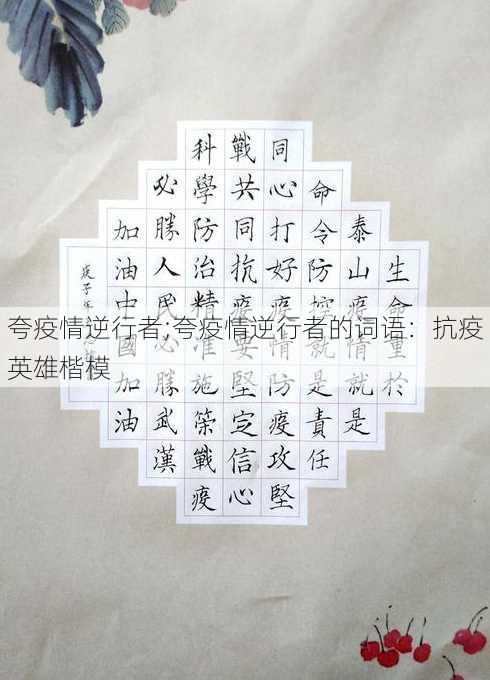 生命重於
泰山疫情是
命令防控就是責任
同心打好疫情防疫攻堅
戰共同抗疫要堅定信心
科學防治精准施策戰疫
必勝人民必勝武漢
加油中國加油
庚子年
夸疫情逆行者;夸疫情逆行者的词语：抗疫
英雄楷模